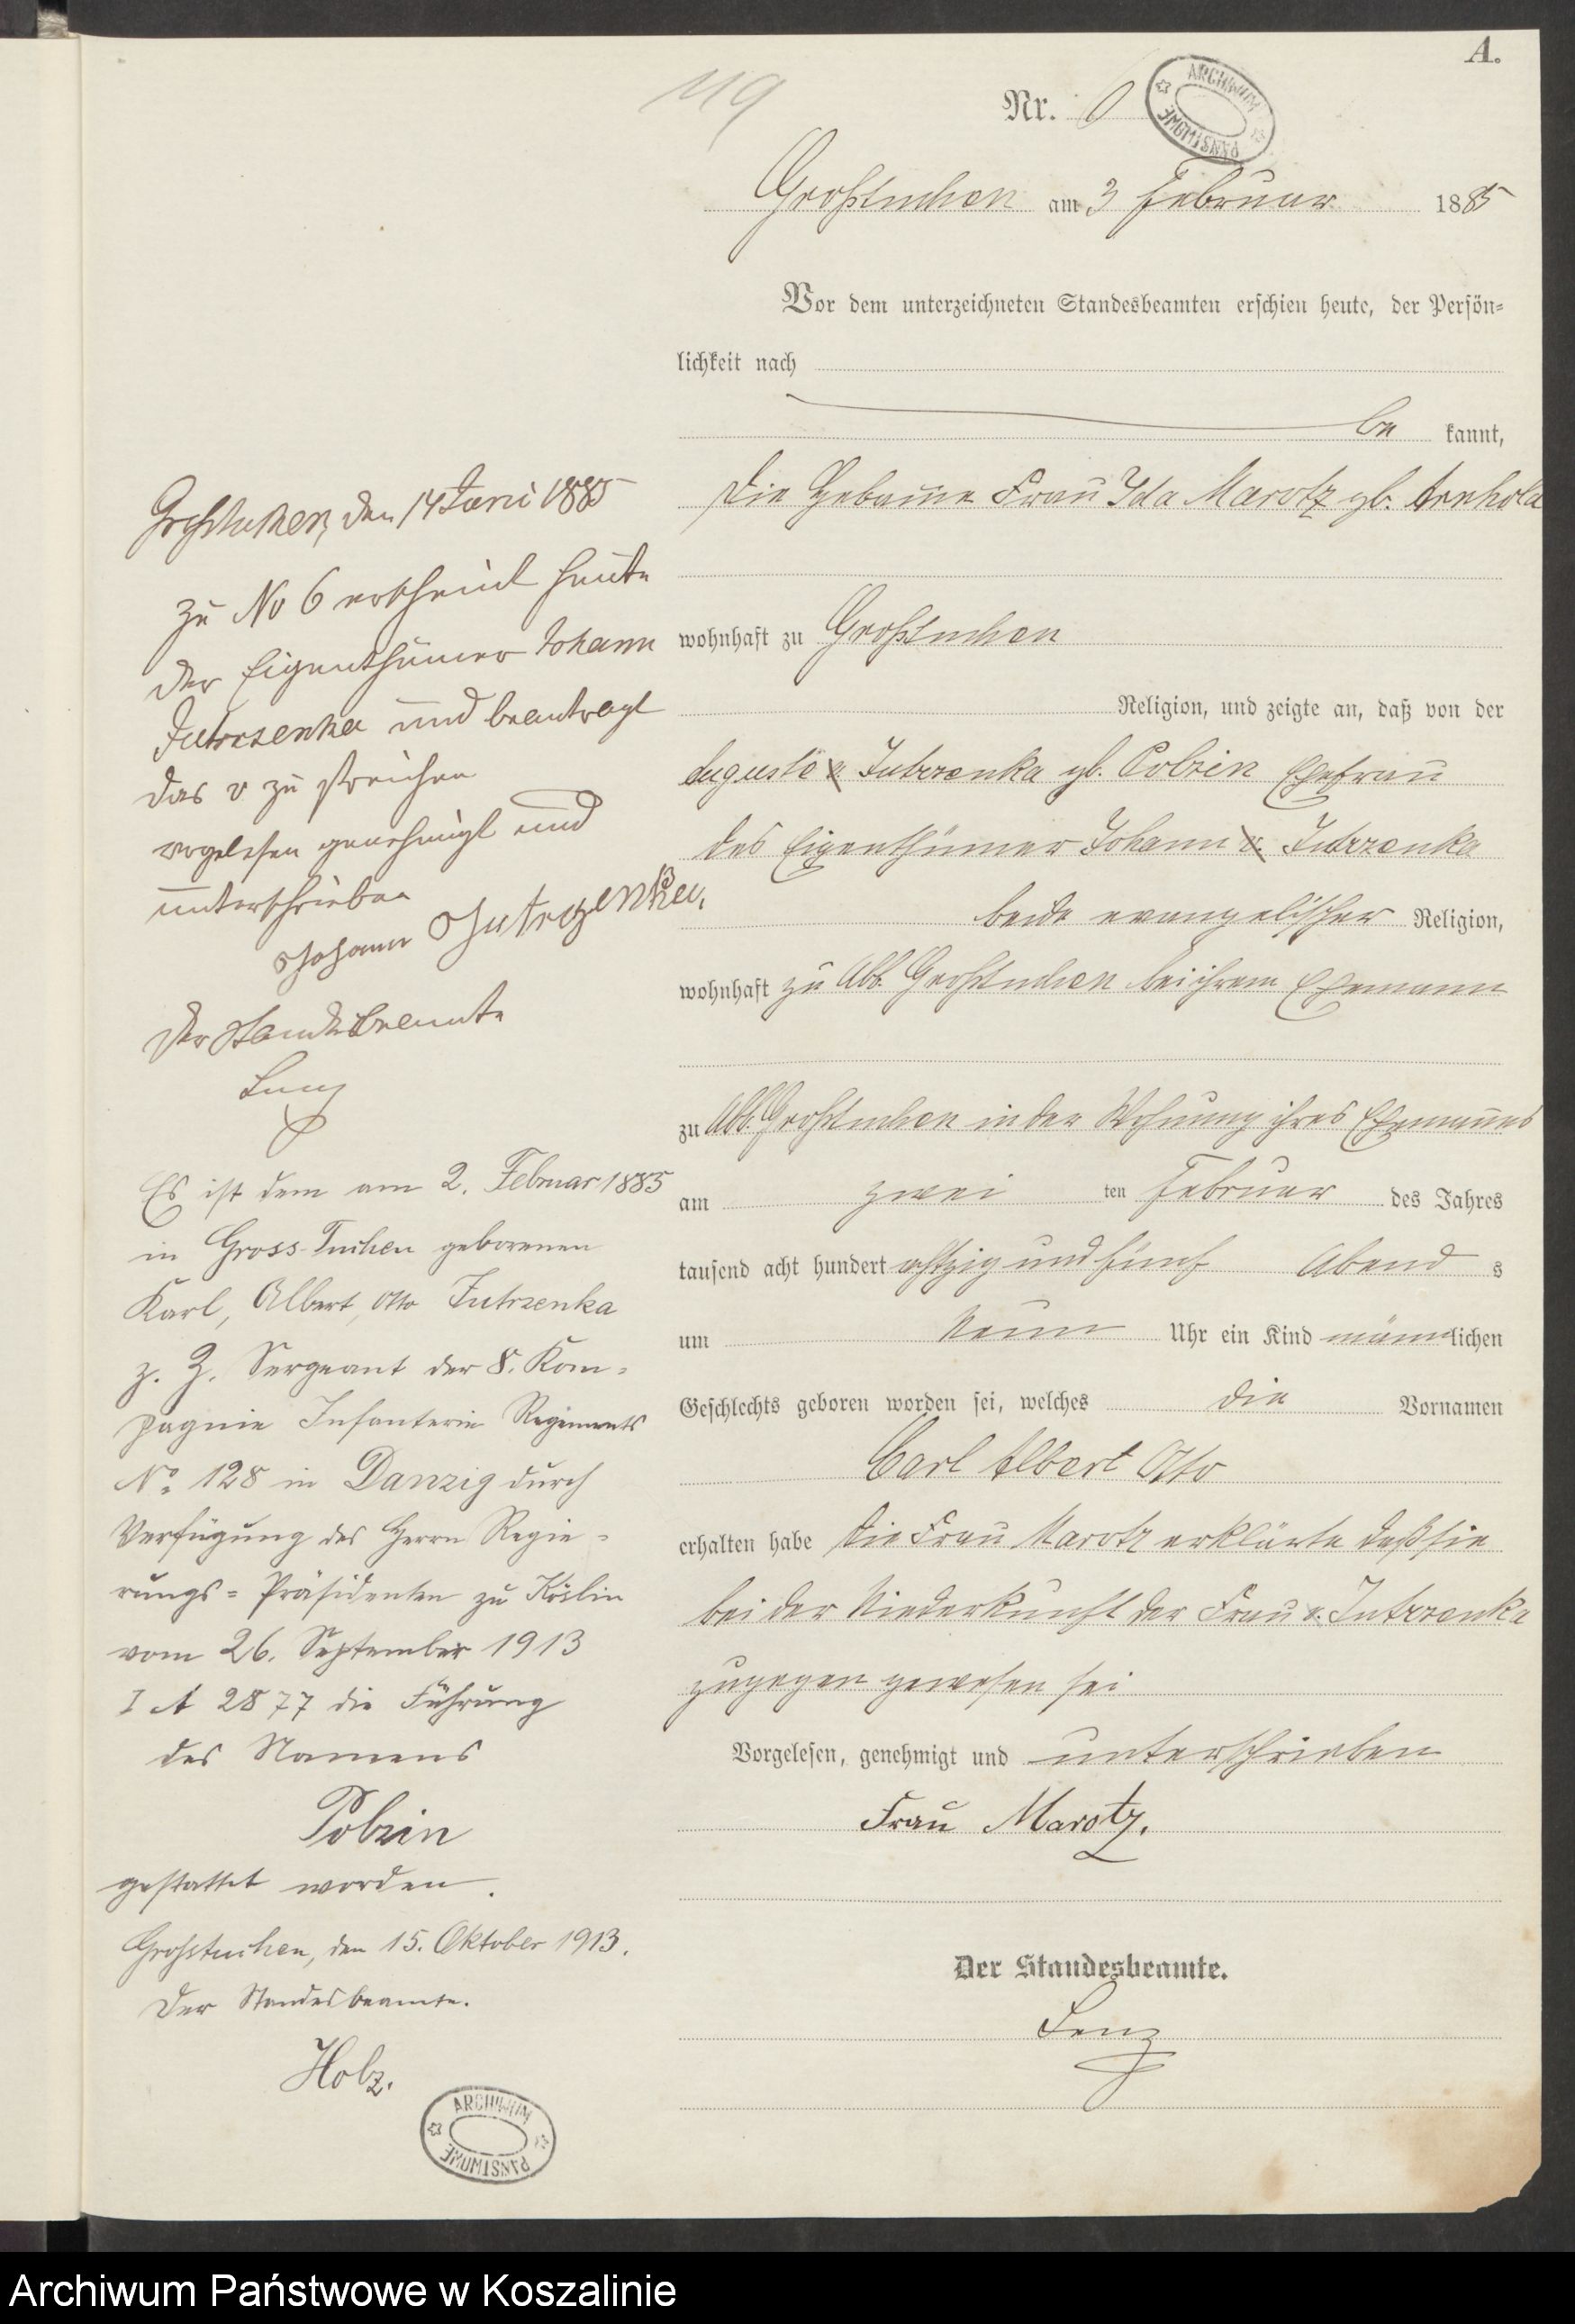 A.
119
Nr. 6
ARCHIWUM PAŃSTWOWE
Großtuchen am 3 Februar 1885
Vor dem unterzeichneten Standesbeamten erschien heute, der Persön-
lichkeit nach
be kannt,
die Hebamme Frau Ida Marotz gb. Arnhold
wohnhaft zu Großtuchen
Religion, und zeigte an, daß von der
Auguste v Jutrzenka gb. Pobzin Ehefrau
des Eigenthümer Johann v. Jutrzenka
beide evangelischer Religion,
wohnhaft zu Abb. Großtuchen bei ihrem Ehemann
zu Abb. Großtuchen in der Wohnung ihres Ehemannes
am zwei ten Februar des Jahres
tausend acht hundert achtzig und fünf Abend s
um Neun Uhr ein Kind männlichen
Geschlechts geboren worden sei, welches die Vornamen
Carl Albert Otto
erhalten habe die Frau Marotz erklärte daß sie
bei der Niederkunft der Frau v. Jutrzenka
zugegen gewesen sei
Vorgelesen, genehmigt und unterschrieben
Frau Marotz.
Der Standesbeamte.
Lenz
Großtuchen, den 14 Juni 1885
Zu No 6 erscheint heute
der Eigenthümer Johann
Jutrzenka und beantragt
das v zu streichen
vorgelesen genehmigt und
unterschrieben
Johann Jutrzenka,
Der Standesbeamte
Lenz
Es ist dem am 2. Februar 1885
in Gross-Tuchen geborenen
Karl, Albert, Otto Jutrzenka
z. Z. Sergeant der 8. Kom-
pagnie Infanterie Regiments
No. 128 in Danzig durch
Verfügung des Herrn Regie-
rungs-Präsidenten zu Köslin
vom 26. September 1913
I A 2877 die Führung
des Namens
Pobzin
gestattet worden.
Großtuchen, den 15. Oktober 1913.
Der Standesbeamte.
Holz.
ARCHIWUM PAŃSTWOWE
Archiwum Państwowe w Koszalinie